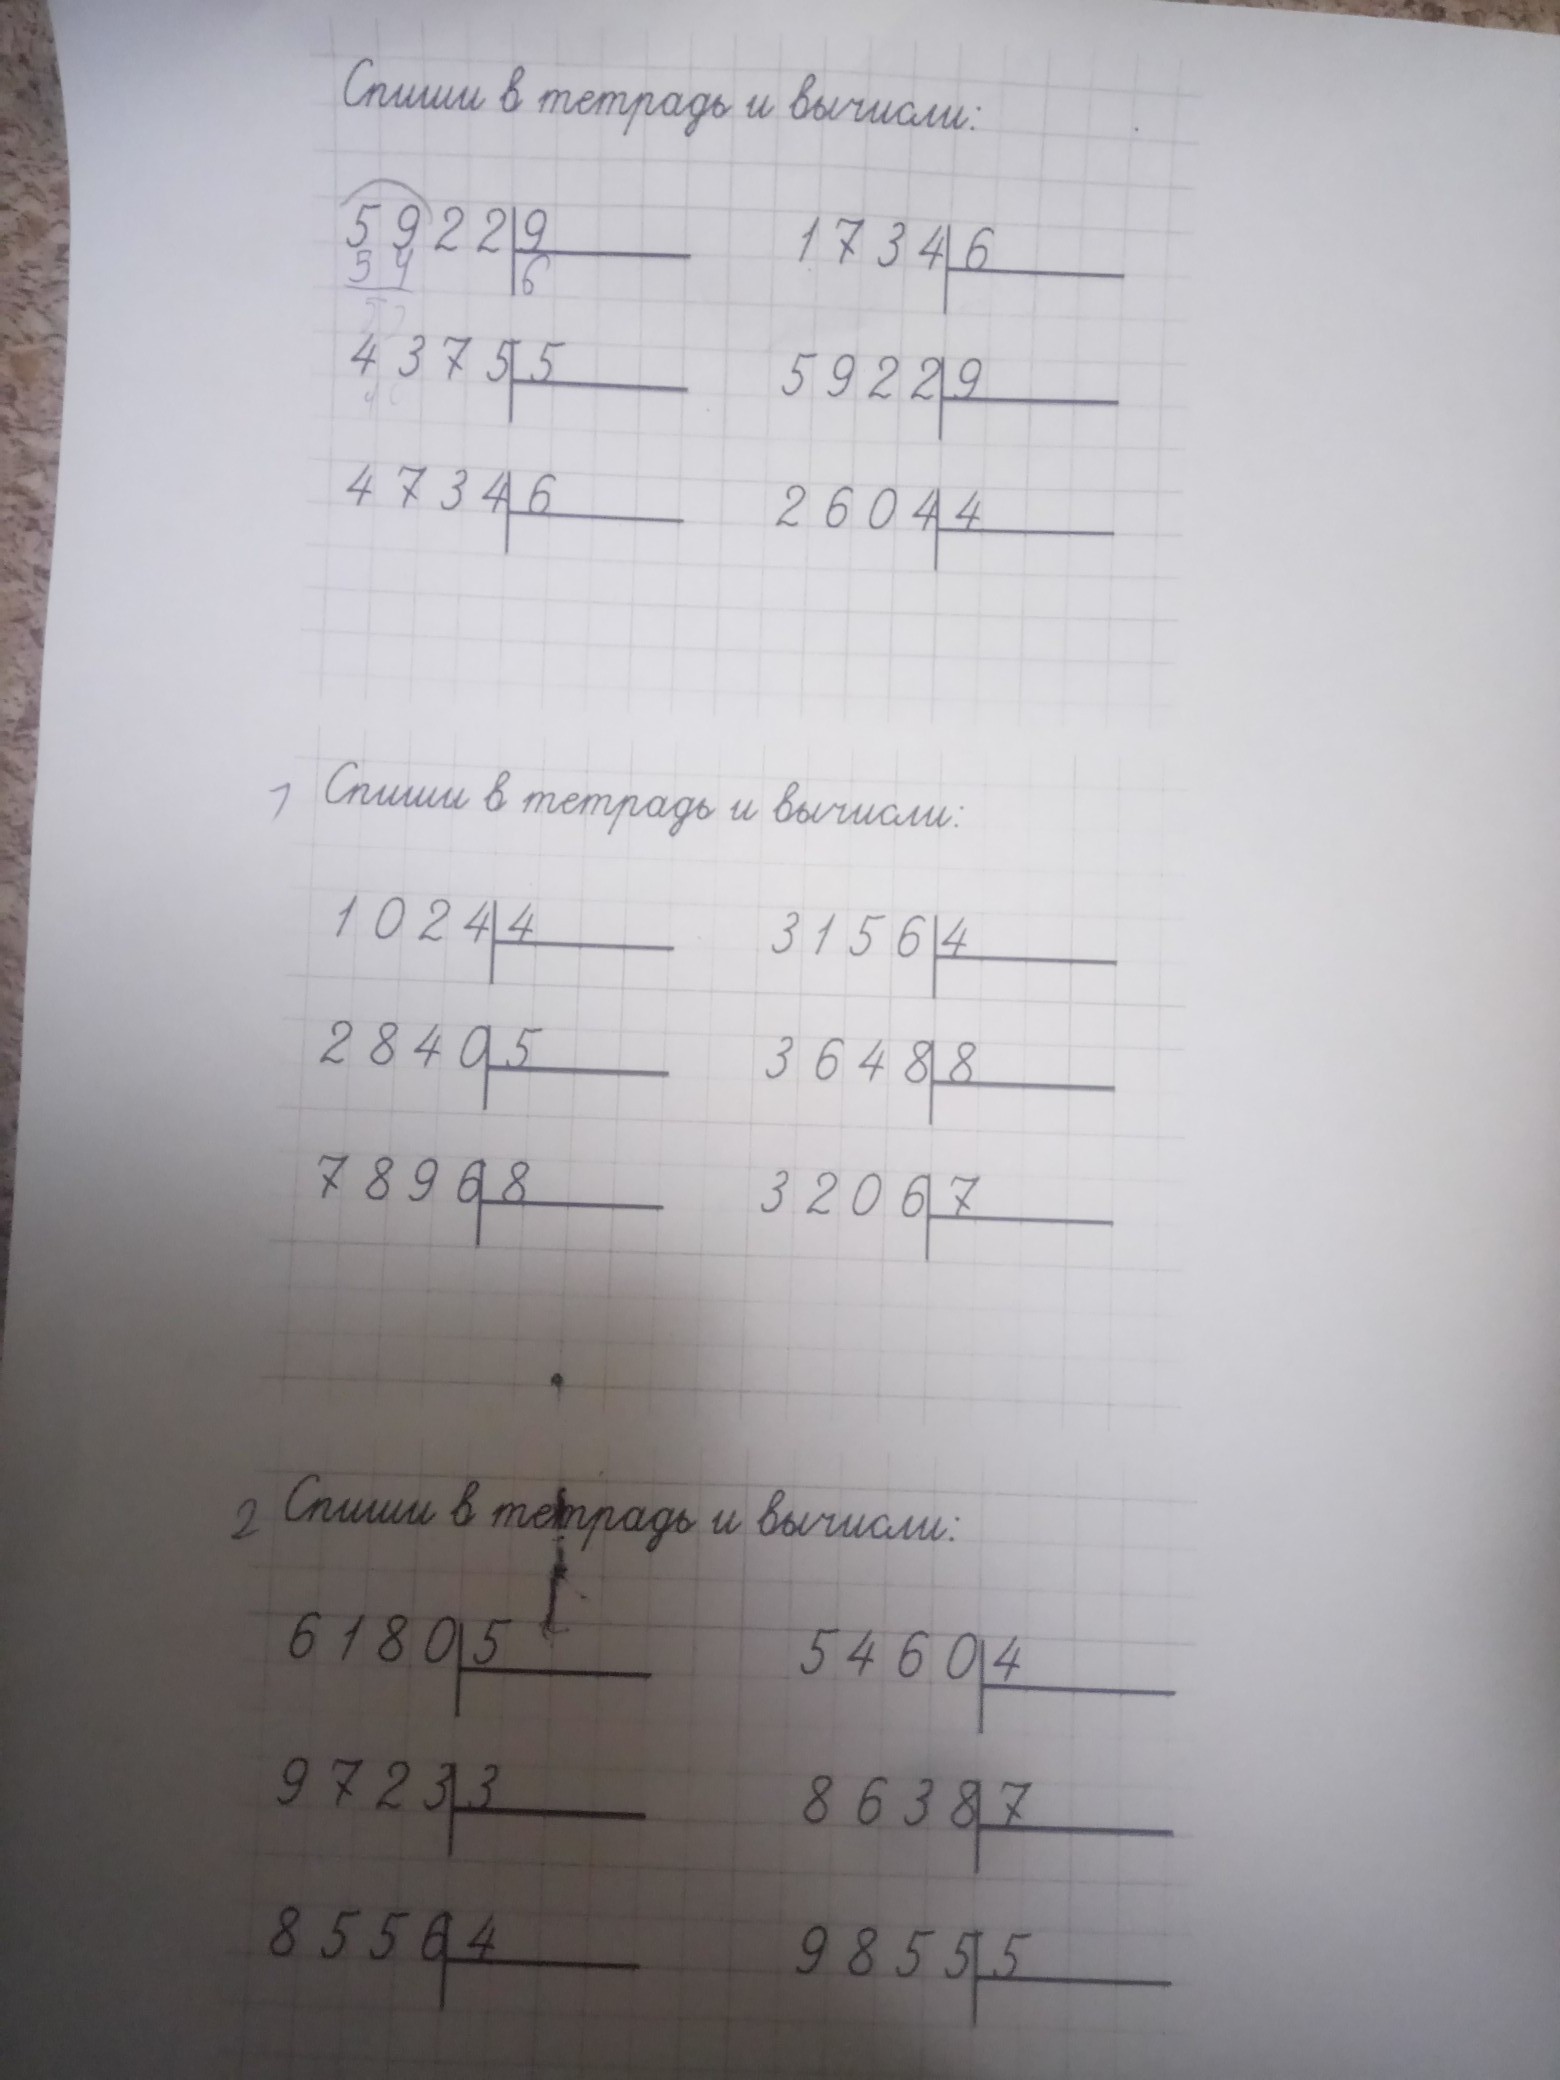 Спиши в тетрадь и вычисли:
5922 9 1734 6
54 6
4375 5 5922 9
4734 6 2604 4
1 Спиши в тетрадь и вычисли:
1024 4 3156 4
2840 5 3648 8
7896 8 3206 7
2 Спиши в тетрадь и вычисли:
6180 5 5460 4
9723 3 8638 7
8556 4 9855 5